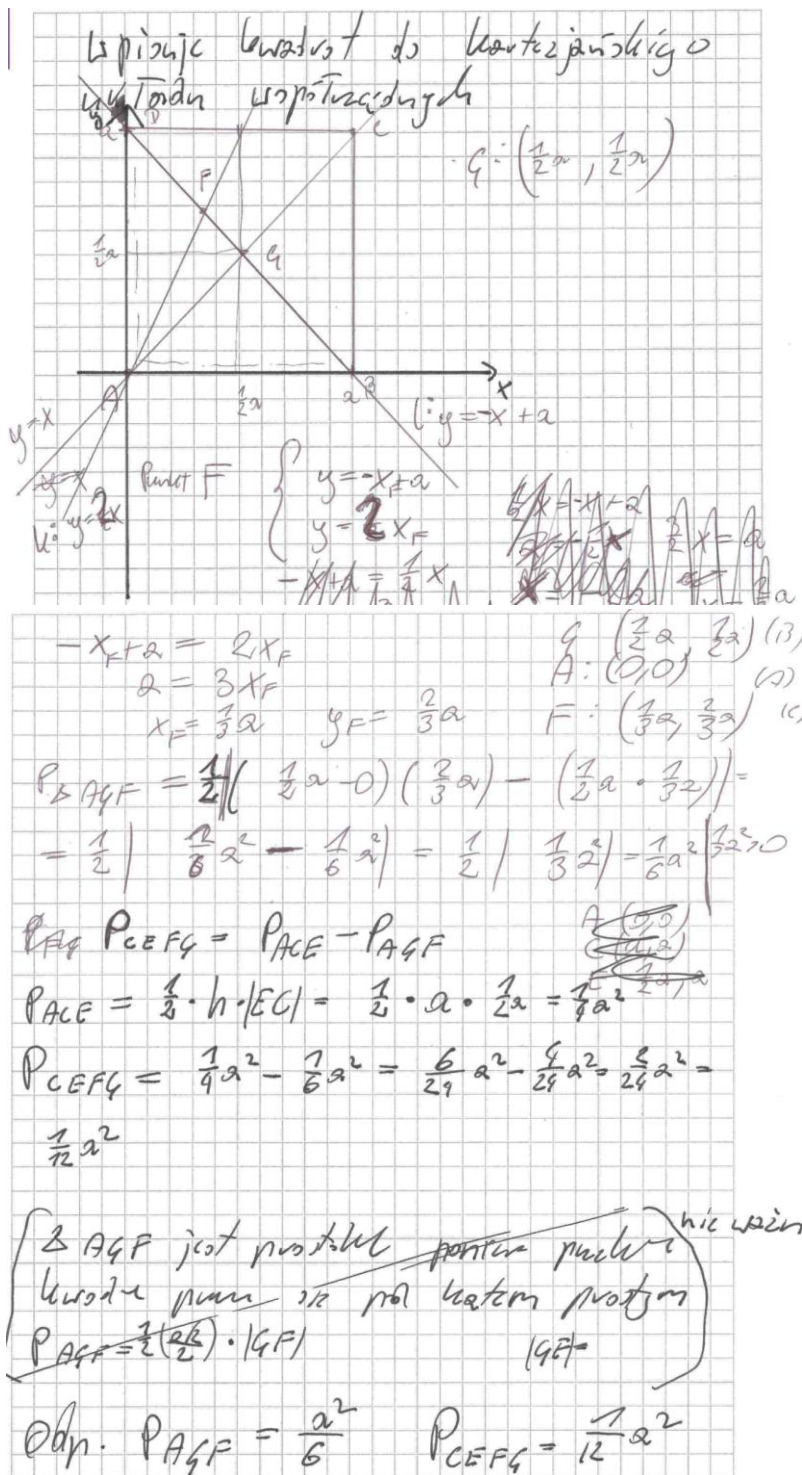 Wpisuję kwadrat do kartezjańskiego
układu współrzędnych
y
a D C
G: (1/2 a, 1/2 a)
F
1/2 a G
A 1/2 a a B x
y=x
l: y=-x+a
y=x
k: y=2x
Punkt F { y=-x_F+a
y=2x_F
-x+a = 1/2 x
-x_F+a = 2x_F G (1/2 a, 1/2 a) (B)
a = 3x_F A: (0,0) (A)
x_F = 1/3 a y_F = 2/3 a F: (1/3 a, 2/3 a) (C)
P_ΔAGF = 1/2 |(1/2 a - 0)(2/3 a) - (1/2 a · 1/3 a)| =
= 1/2 | 2/6 a² - 1/6 a² | = 1/2 | 1/3 a² | = 1/6 a² | 1/3 a² > 0
P_AG P_CEFG = P_ACE - P_AGF
A (0,0)
C (a,a)
1/2 a, a
P_ACE = 1/2 · h · |EC| = 1/2 · a · 1/2 a = 1/4 a²
P_CEFG = 1/4 a² - 1/6 a² = 6/24 a² - 4/24 a² = 2/24 a² =
1/12 a²
Δ AGF jest prostokt poniew
kwadr pod kątem prostym
nie ważn
P_AGF = 1/2 (a√2/2) · |GF| |GF|=
Odp. P_AGF = a²/6 P_CEFG = 1/12 a²